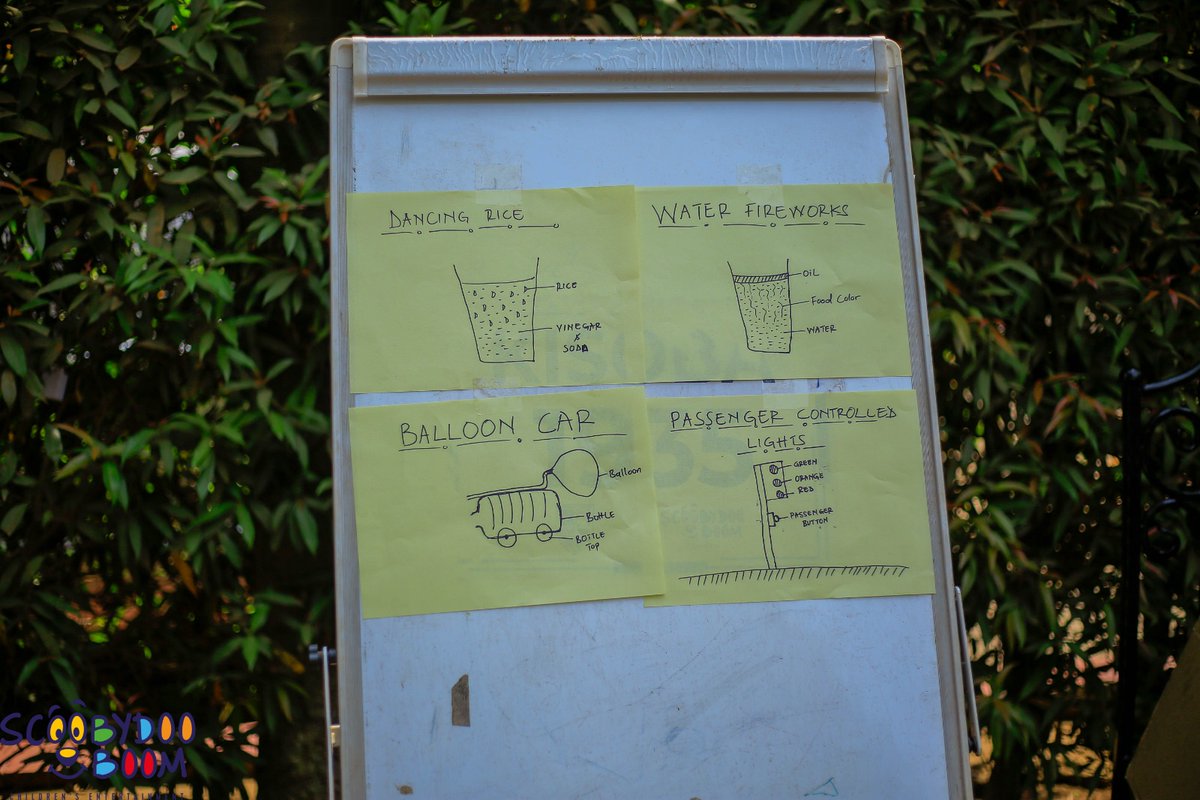 DANCING RICE
RICE
VINEGAR
&
SODA
WATER FIREWORKS
OIL
Food Color
WATER
BALLOON CAR
Balloon
Bottle
BOTTLE
TOP
PASSENGER CONTROLLED
LIGHTS
GREEN
ORANGE
RED
PASSENGER
BUTTON
SCOOBYDOO
BOOM
CHILDREN'S ENTERTAINMENT